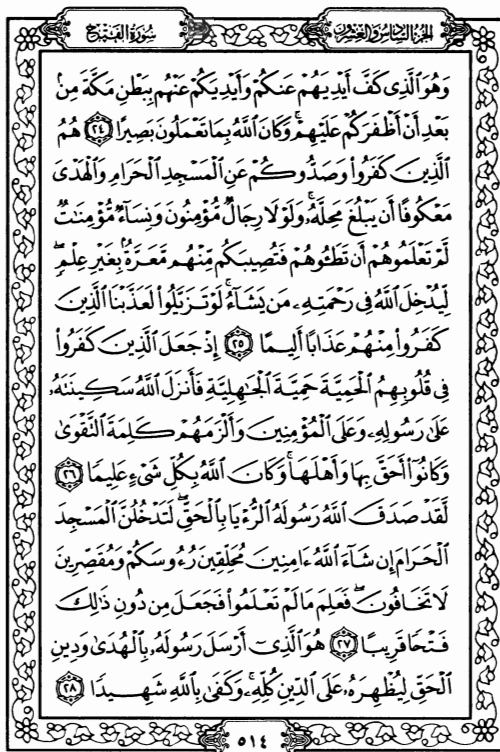 الجزء السادس والعشرون
سُورَةُ الفَتْحِ
وَهُوَ ٱلَّذِى كَفَّ أَيْدِيَهُمْ عَنكُمْ وَأَيْدِيَكُمْ عَنْهُم بِبَطْنِ مَكَّةَ مِنۢ
بَعْدِ أَنْ أَظْفَرَكُمْ عَلَيْهِمْ ۚ وَكَانَ ٱللَّهُ بِمَا تَعْمَلُونَ بَصِيرًا ٢٤ هُمُ
ٱلَّذِينَ كَفَرُوا۟ وَصَدُّوكُمْ عَنِ ٱلْمَسْجِدِ ٱلْحَرَامِ وَٱلْهَدْىَ
مَعْكُوفًا أَن يَبْلُغَ مَحِلَّهُۥ ۚ وَلَوْلَا رِجَالٌ مُّؤْمِنُونَ وَنِسَآءٌ مُّؤْمِنَٰتٌ
لَّمْ تَعْلَمُوهُمْ أَن تَطَـُٔوهُمْ فَتُصِيبَكُم مِّنْهُم مَّعَرَّةٌۢ بِغَيْرِ عِلْمٍ ۖ
لِّيُدْخِلَ ٱللَّهُ فِى رَحْمَتِهِۦ مَن يَشَآءُ ۚ لَوْ تَزَيَّلُوا۟ لَعَذَّبْنَا ٱلَّذِينَ
كَفَرُوا۟ مِنْهُمْ عَذَابًا أَلِيمًا ٢٥ إِذْ جَعَلَ ٱلَّذِينَ كَفَرُوا۟
فِى قُلُوبِهِمُ ٱلْحَمِيَّةَ حَمِيَّةَ ٱلْجَٰهِلِيَّةِ فَأَنزَلَ ٱللَّهُ سَكِينَتَهُۥ
عَلَىٰ رَسُولِهِۦ وَعَلَى ٱلْمُؤْمِنِينَ وَأَلْزَمَهُمْ كَلِمَةَ ٱلتَّقْوَىٰ
وَكَانُوٓا۟ أَحَقَّ بِهَا وَأَهْلَهَا ۚ وَكَانَ ٱللَّهُ بِكُلِّ شَىْءٍ عَلِيمًا ٢٦
لَّقَدْ صَدَقَ ٱللَّهُ رَسُولَهُ ٱلرُّءْيَا بِٱلْحَقِّ ۖ لَتَدْخُلُنَّ ٱلْمَسْجِدَ
ٱلْحَرَامَ إِن شَآءَ ٱللَّهُ ءَامِنِينَ مُحَلِّقِينَ رُءُوسَكُمْ وَمُقَصِّرِينَ
لَا تَخَافُونَ ۖ فَعَلِمَ مَا لَمْ تَعْلَمُوا۟ فَجَعَلَ مِن دُونِ ذَٰلِكَ
فَتْحًا قَرِيبًا ٢٧ هُوَ ٱلَّذِىٓ أَرْسَلَ رَسُولَهُۥ بِٱلْهُدَىٰ وَدِينِ
ٱلْحَقِّ لِيُظْهِرَهُۥ عَلَى ٱلدِّينِ كُلِّهِۦ ۚ وَكَفَىٰ بِٱللَّهِ شَهِيدًا ٢٨
٥١٤